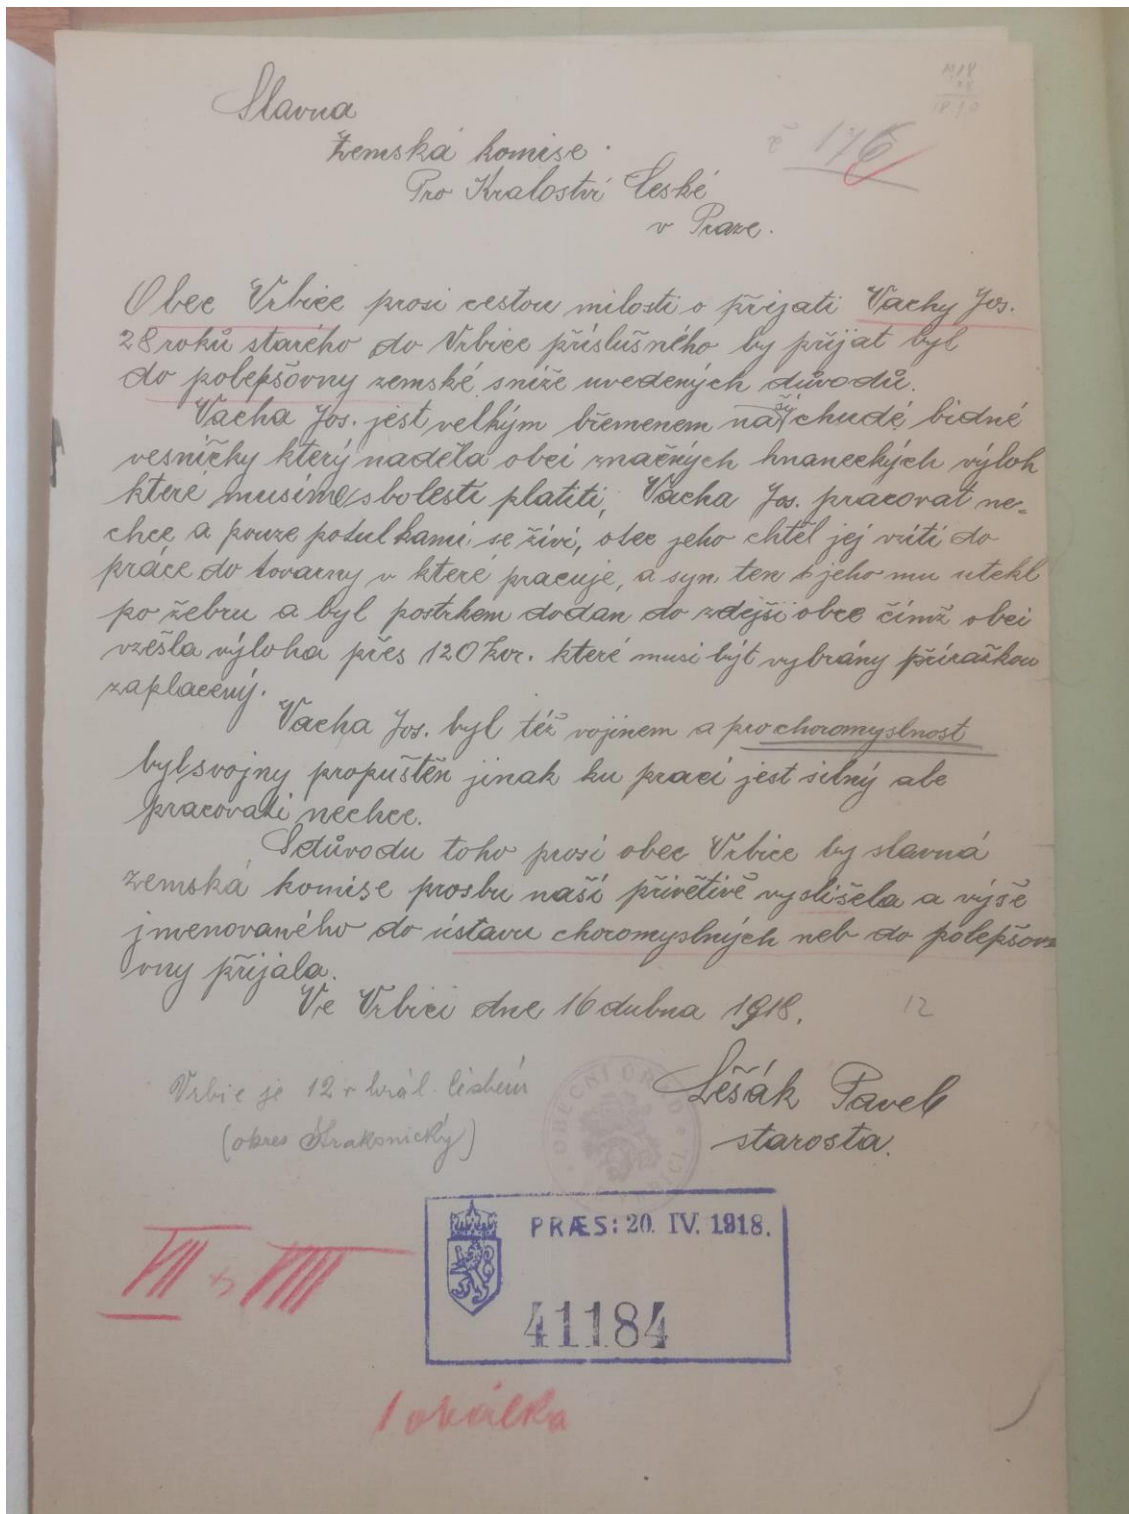 1918
28
1890
Slavna
Zemská komise.
č 176
Pro Kralostvi České
v Praze.
Obec Vrbice prosi cestou milosti o přijati Vachy Jos.
28 roků starého do Vrbice příslušného by přijat byl
do polepšovny zemské sníže uvedených důvodů.
Vacha Jos. jest velkým břemenem naší chudé bidné
vesničky který naděla obci značných hnaneckých výloh
které musíme sbolestí platiti, Vacha Jos. pracovat ne=
chce a pouze potulkami se živi, otec jeho chtěl jej vzíti do
práce do tovarny v které pracuje, a syn ten jeho mu utekl
po žebru a byl postrkem dodan do zdejši obce čímž obci
vzešla výloha přes 120 kor. které musi být vybrány přiražkou
zaplacený.
Vacha Jos. byl též vojinem a pro choromyslnost
byl svojny propuštěn jinak ku praci jest silný ale
pracovati nechce.
Sdůvodu toho prosí obec Vrbice by slavná
zemská komise prosbu naší přivětivě vyslišela a výše
jmenovaného do ústavu choromyslných neb do polepšov
vny přijala.
Ve Vrbici dne 16 dubna 1918.
12
Vrbic je 12 v král. českém
(okres Strakonický)
Lešák Pavel
starosta.
OBECNÍ ÚŘAD
VRBICI
PRÆS: 20. IV. 1918.
41184
VII + VIII
1 obálka